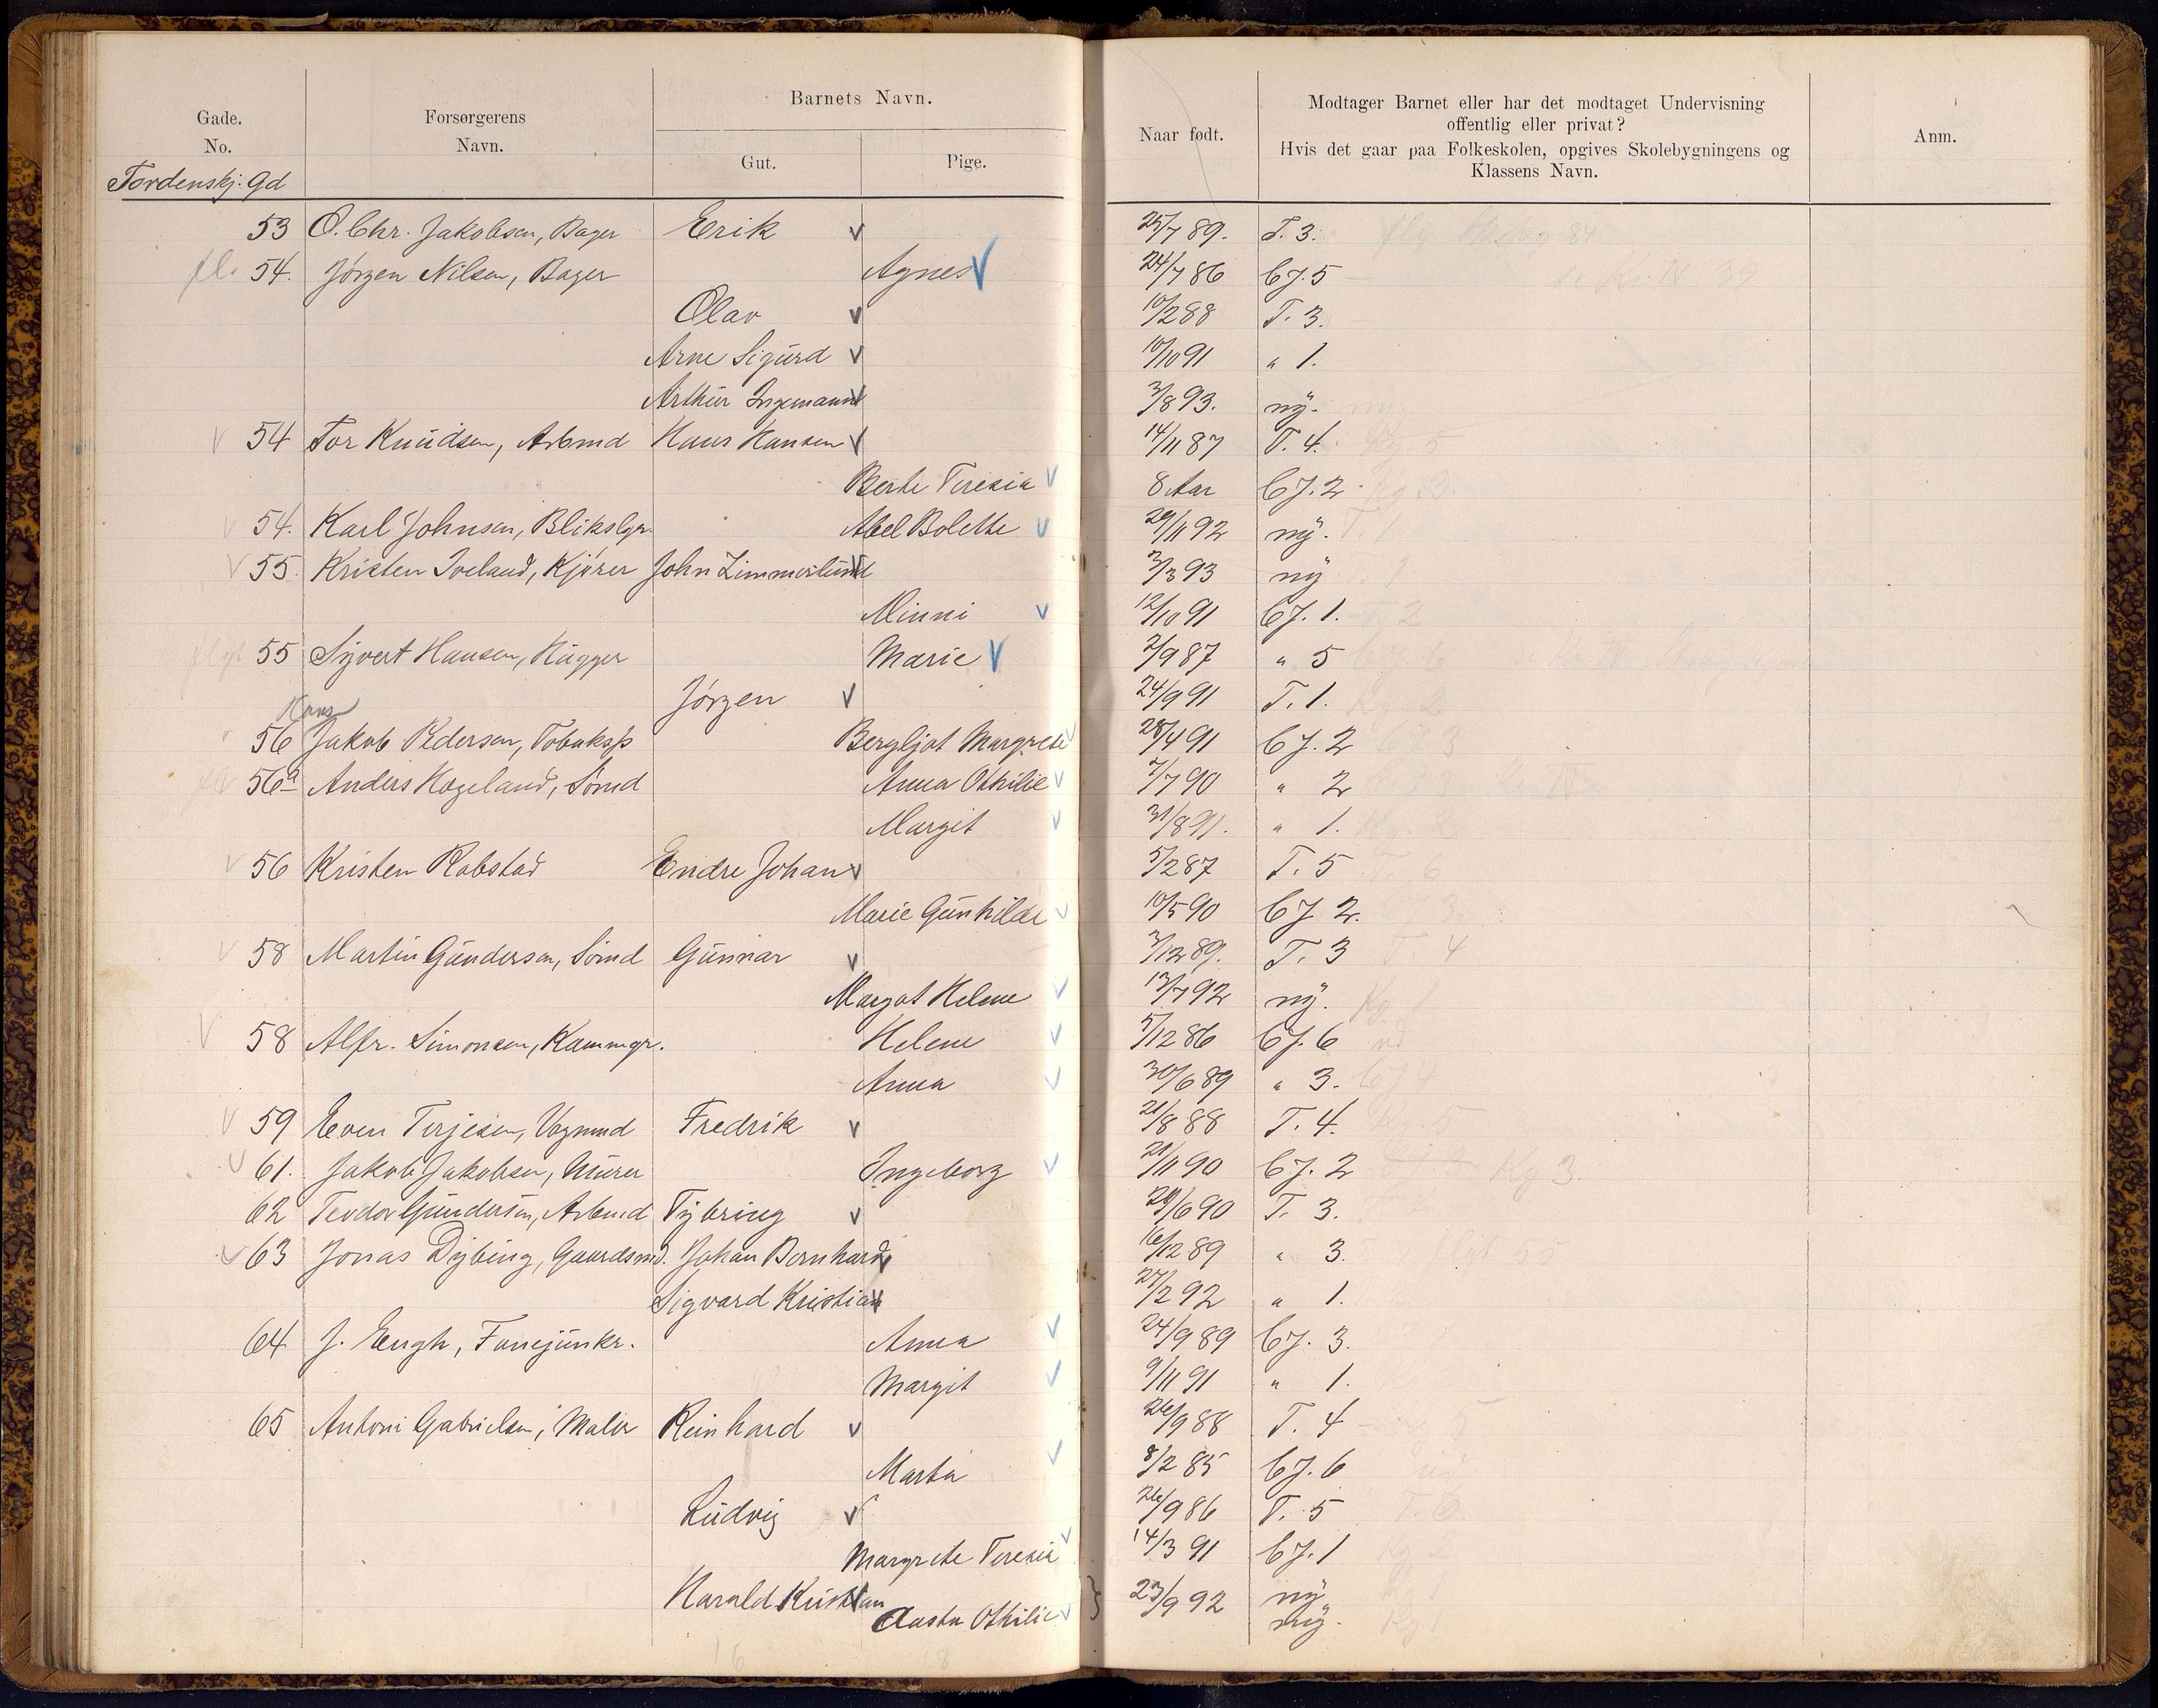 Gade.
No.
Forsørgerens
Navn.
Barnets Navn.
Gut.
Pige.
Naar født.
Modtager Barnet eller har det modtaget Undervisning
offentlig eller privat?
Hvis det gaar paa Folkeskolen, opgives Skolebygningens og
Klassens Navn.
Anm.
Tordenskj. Gd
53 O. Chr. Jakobsen, Bager Erik v 25/7 89. T. 3.
fl. 54. Jörgen Nilsen, Bager Agnes v 24/7 86 CJ. 5
Olav v 10/2 88 T. 3.
Arne Sigurd v 10/10 91 " 1.
Arthur Ingemann v 3/8 93. ny.
v 54 Tor Knudsen, Arbmd Hans Hansen v 14/11 87 T. 4.
Berte Teresia v 8 Aar CJ. 2
v 54. Karl Johnsen, Blikslgr. Abel Bolette v 29/11 92 ny. T. 1
v 55. Kristen Iveland, Kjörer John Zimmerlund v 3/3 93 ny
Minni v 12/10 91 CJ. 1.
flyt 55 Syvert Hansen, Rugger Marie v 2/9 87 " 5
Jörgen v 24/9 91 T. 1.
Hans
56 Jakob Pedersen, Tobaksp Bergljot Margrete v 28/4 91 CJ. 2
56a Anders Hogeland, Sömd Anna Othilie v 7/7 90 " 2
Margit v 31/8 91. " 1.
v 56 Kristen Robstad Endre Johan v 5/2 87 T. 5 T. 6
Marie Gunhilde v 10/5 90 CJ 2.
v 58 Martin Gundersen, Sömd Gunnar v 3/12 89. T. 3 T. 4
Margot Helene v 13/7 92 ny.
v 58 Alfr. Simonsen, Kammgr. Helene v 5/12 86 CJ. 6
Anna v 30/6 89 " 3. CJ 4
v 59 Even Terjesen, Vognmd Fredrik v 21/8 88 T. 4.
v 61. Jakob Jakobsen, Murer Ingeborg v 21/11 90 CJ. 2 Kg 3.
62 Teodor Gundersen, Arbmd Tybring v 29/6 90 T. 3.
v 63 Jonas Dybing, Gaardsmd. Johan Bernhard v 16/12 89 " 3.
Sigvard Kristian v 27/2 92 " 1.
64 J. Eengh, Fanejunkr. Anna v 24/9 89 CJ. 3.
Margit v 9/11 91 " 1.
65 Antoni Gabrielsen, Maler Reinhard v 26/9 88 T. 4
Marta v 8/2 85 CJ. 6 ud
Ludvig v 26/9 86 T. 5 T. 6
Margrete Teresia v 14/3 91 CJ. 1
Harald Kristian v 23/9 92 ny
Aasta Othilie v ny.